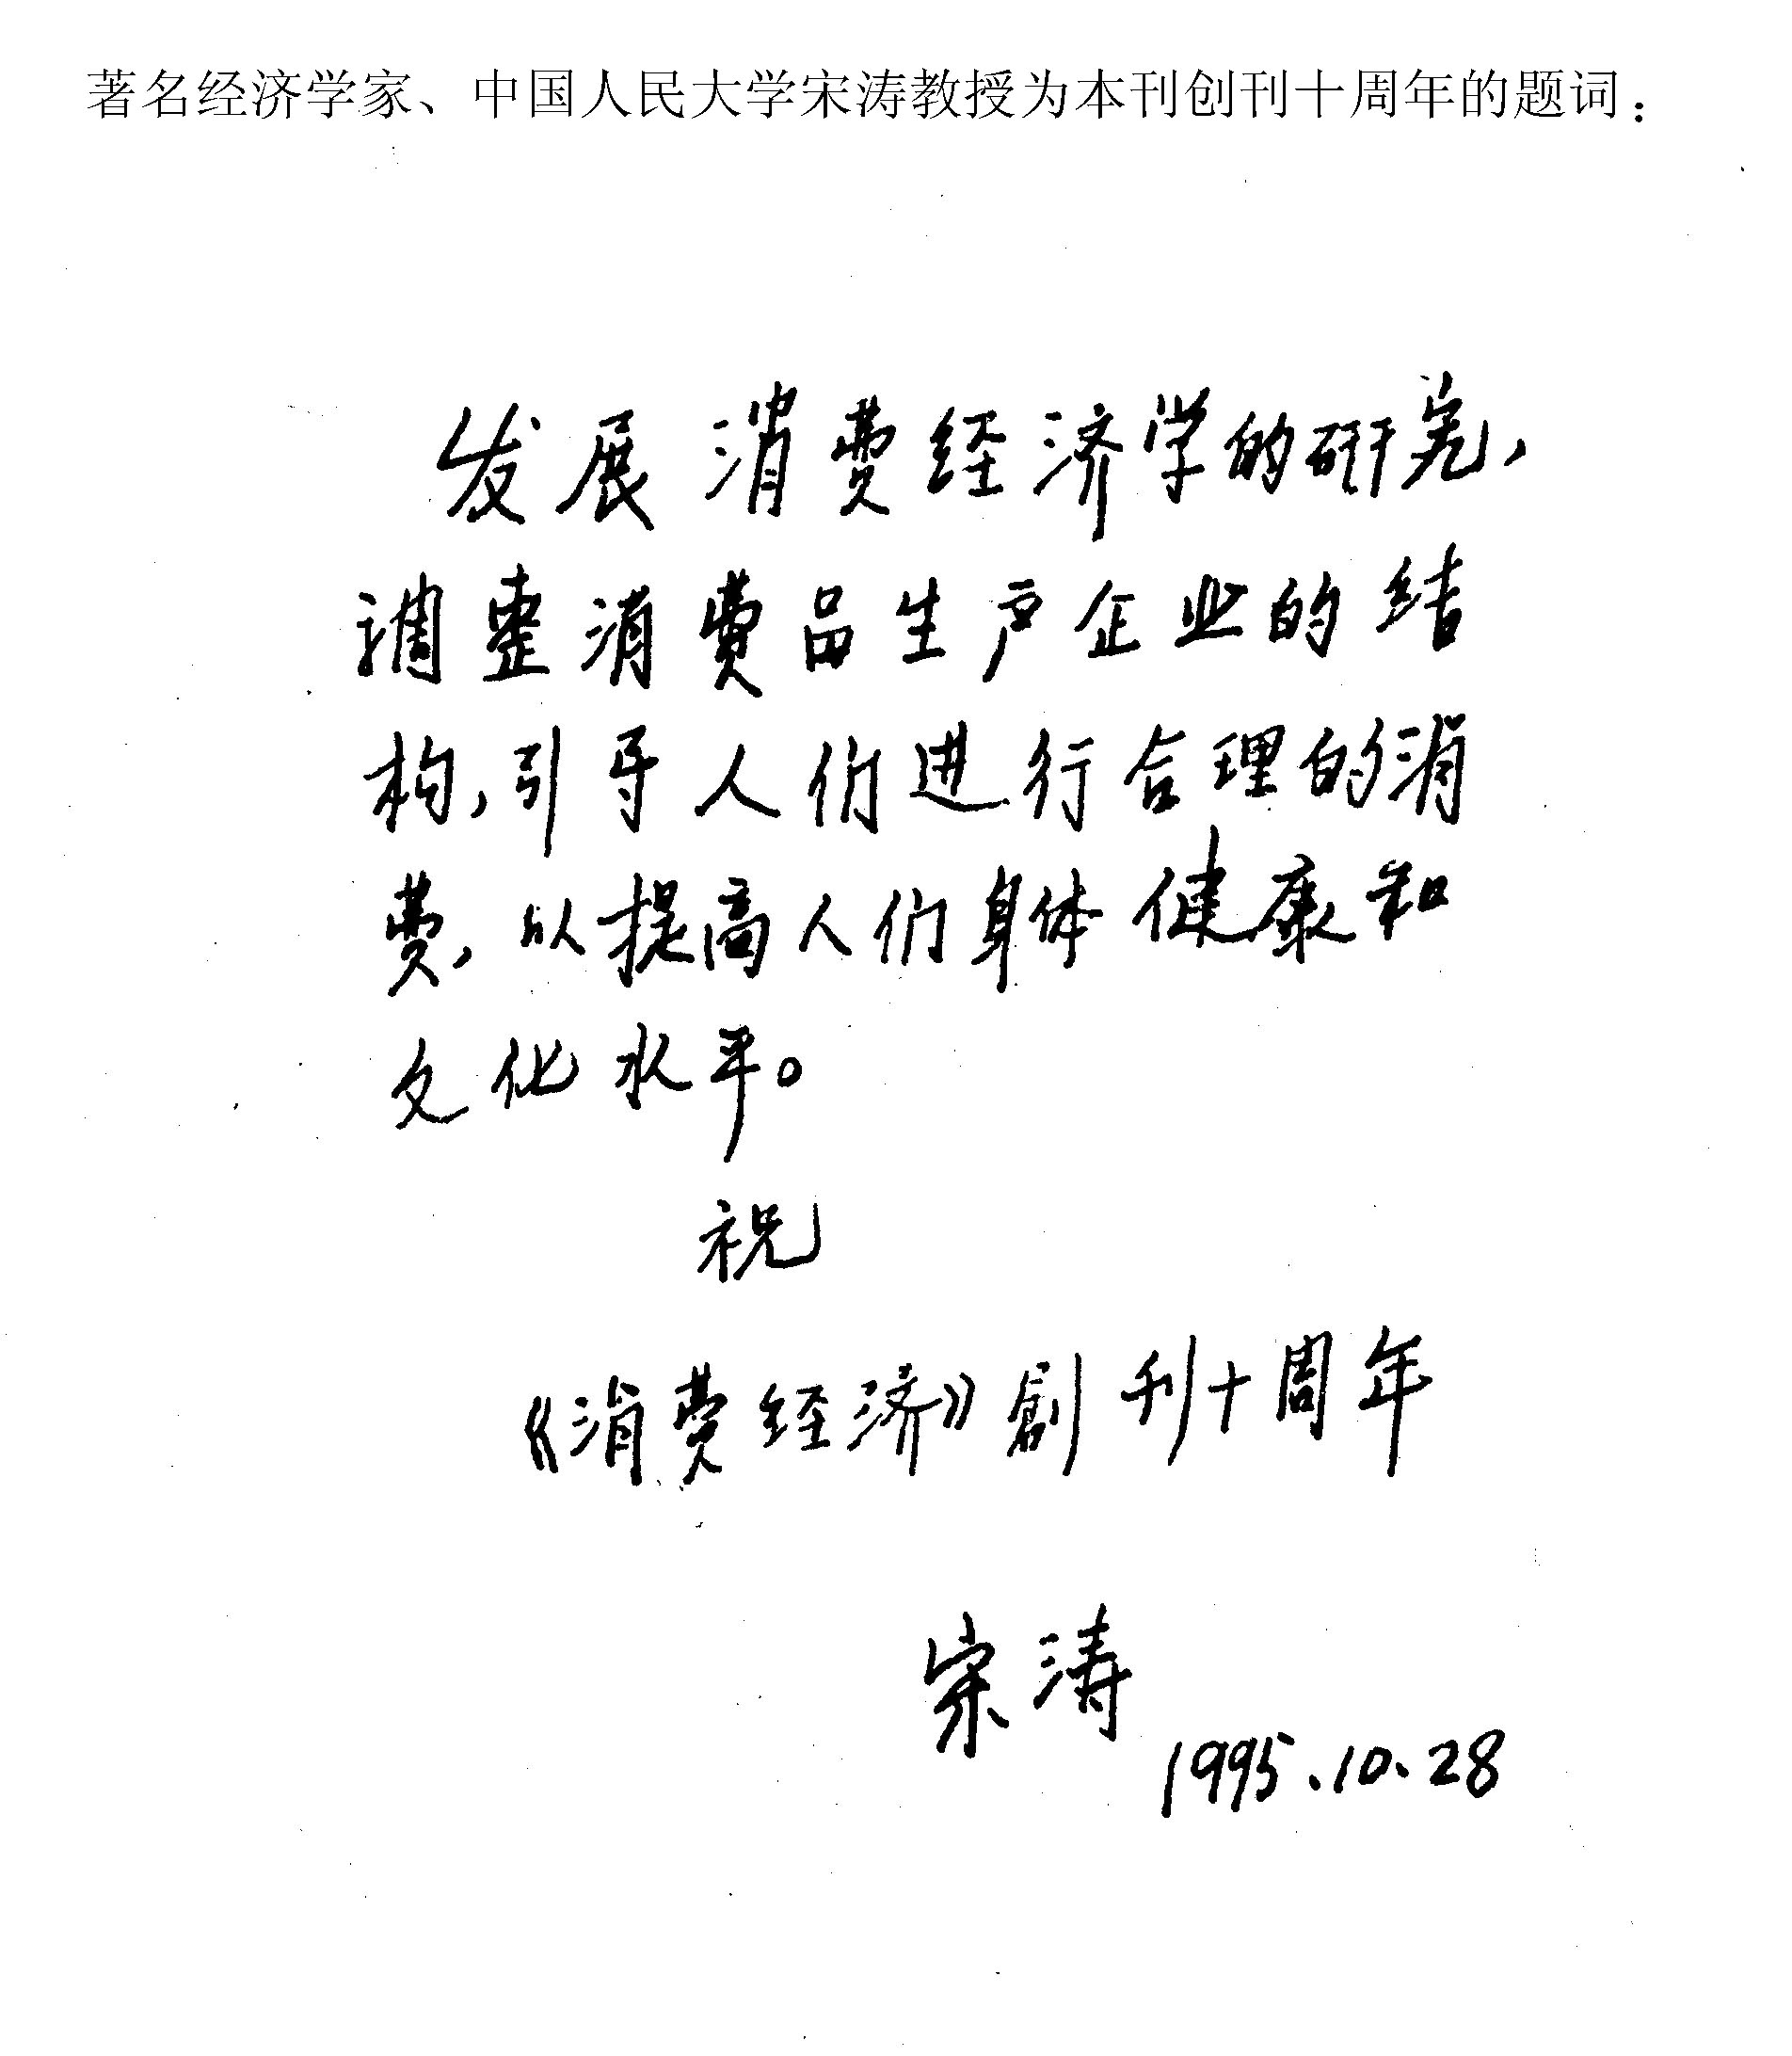 著名经济学家、中国人民大学宋涛教授为本刊创刊十周年的题词：
发展消费经济学的研究，
调整消费品生产企业的结
构，引导人们进行合理的消
费，以提高人们身体健康和
文化水平。
祝
《消费经济》創刊十周年
宋涛
1995.10.28